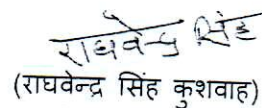 राघवेन्द्र सिंह
(राघवेन्द्र सिंह कुशवाह)